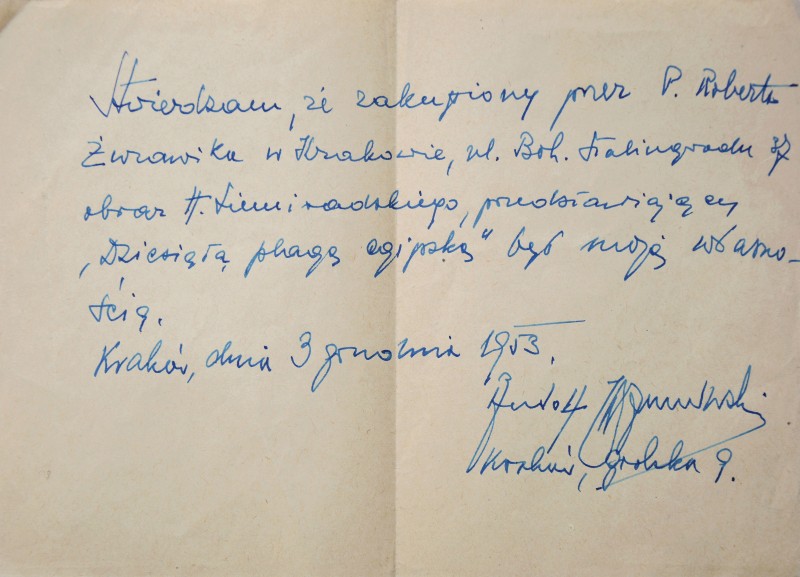 Stwierdzam, że zakupiony przez P. Roberta
Żurawika w Krakowie, ul. Boh. Stalingradu 37
obraz H. Siemiradzkiego, przedstawiający
„Dziesiątą plagę egipską" był moją własno-
ścią.
Kraków, dnia 3 grudnia 1953.
Rudolf
Kraków, Grodzka 9.